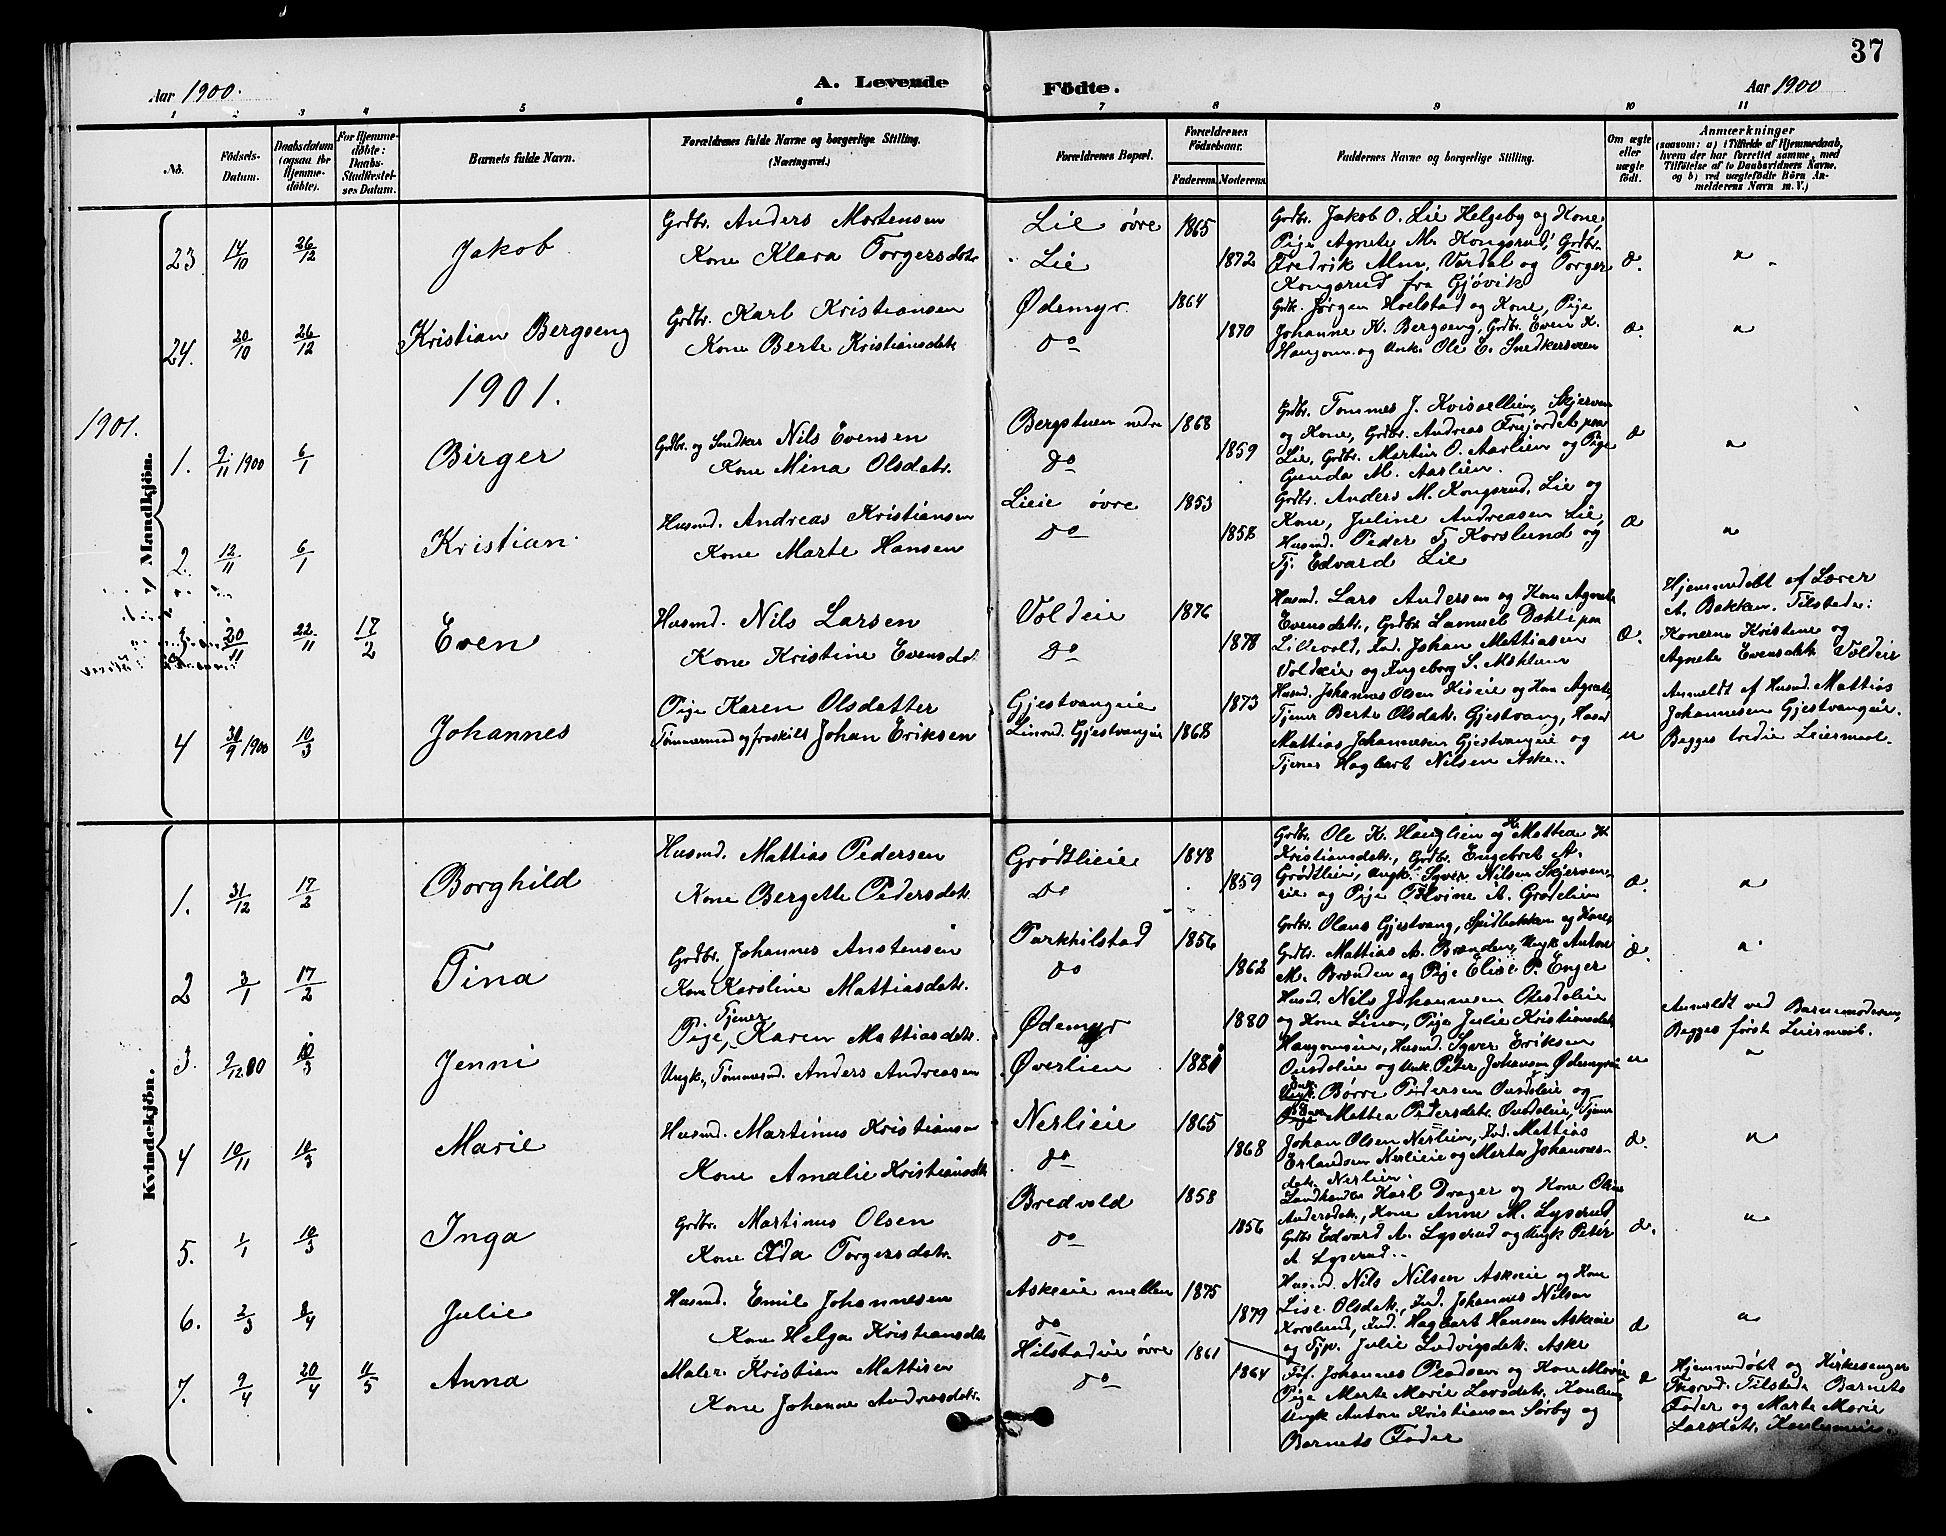 37
Aar 1900.
A. Levende
Födte.
Aar 1900
1 2 3 4 5 6 7 8 9 10 11
No.
Födsels-
Datum.
Daabsdatum
(ogsaa for
Hjemme-
døbte).
For Hjemme-
døbte:
Daabs-
Stadfæstel-
ses Datum.
Barnets fulde Navn.
Forældrenes fulde Navne og borgerlige Stilling.
(Næringsvei.)
Forældrenes Bopæl.
Forældrenes
Födselsaar.
Faderens.
Moderens.
Faddernes Navne og borgerlige Stilling.
Om ægte
eller
uægte
født.
Anmærkninger
(saasom: a) i Tilfælde af Hjemmedaab,
hvem der har forrettet samme, med
Tilføielse af to Daabsvidners Navne,
og b) ved uægtefødte Börn An-
melderens Navn m. V.)
Mandkjön.
23. 14/10 26/12 Jakob
Grdbr. Anders Mortensen
Kone Klara Torgersdatr
Lie övre 1865
Lie 1872
Grdbr. Jakob O. Lie Helgeby og Kone,
Pige Agnete M. Kongsrud, Grdbr.
Fredrik Alm, Vardal og Torger
Kongsrud fra Gjövik
æ. "
24. 20/10 26/12 Kristian Bergseng
Grdbr. Karl Kristiansen
Kone Berte Kristiansdatr
Ødemyr 1864
do 1870
Grdb. Jørgen Hoelstad og Kone, Pige
Johanne K. Bergseng, Grdbr. Even K.
Haugom og Unk. Ole E. Snedkersveen
æ. "
1901.
1901.
1. 2/11 1900 6/1 Birger
Grdbr. og Snedker Nils Evensen
Kone Mina Olsdatr.
Bergstuen nedre 1868
do 1859
Grdbr. Tommes J. Kvisellien, Skjerven
og Kone, Grdbr. Andreas paa
Lie, Grdbr. Martin O. Aarlien og Pige
Gunda M. Aarlien.
æ "
2. 12/11 6/1 Kristian
Husmd. Andreas Kristiansen
Kone Marte Hansen
Lieie övre 1853
do 1858
Grdbr. Anders M. Kongsrud, Lie og
Kone, Juline Andreasen Lie,
Husmd. Peder T. Korslund og
Tj. Edvard Lie
æ "
3. 20/11 22/11 17/2 Even
Husmd. Nils Larsen
Kone Kristine Evensdatr.
Voldeie 1876
do 1878
Husmd. Lars Andersen og Kone Agnete
Evensdatr, Grdbr. Samuel Dæhli paa
Lillevold, Ind. Johan Mattiasen
Voldeie og Ingeborg S.
æ.
Hjemmedøbt af Lærer
A. Bakken. Tilstede:
Konerne Kristine og
Agnete Evensdatr. Voldeie
4 30/9 1900 10/3 Johannes
Pige Karen Olsdatter
Tömmermd og fraskilt Johan Eriksen
Gjestvangeie 1873
Gjestvangeie 1868
Husmd. Johannes Olsen og Kone Agnete,
Tjener Berte Olsdatr. Gjestvang, Husmd
Mattias Johannesen Gjestvangeie og
Tjener Hagbart Nilsen Aske..
u
Anmeldt af Husmd. Mattias
Johannesen Gjestvangeie.
Begges tredie Leiermaal.
Kvindekjön.
1. 31/12 17/2 Borghild
Husmd. Mattias Pedersen
Kone Bergette Pedersdatr.
Grødtlieie 1848
do 1859
Grdbr. Ole K. Hauglien og K. Mattea K
Kristiansdatr., Grdbr. Engebret A.
Grødtlien, Ungk. Syver Nilsen Skjerven-
eie og Pige A. Grødlien
æ. "
2 3/1 17/2 Tina
Grdbr. Johannes Anstensen
Kone Karoline Mattiasdatr.
Parkhilstad 1856
do 1862
Grdbr. Olaus Gjestvang, og Kone,
Grdbr. Mattias A. Brænden, Ungk Anton
M. Brænden og Pige Elise P. Enger
æ. "
3. 2/12 00 10/3 Jenni
Pige, Tjener Karen Mattiasdatr.
Ungk., Tømmermd. Anders Andreasen
Ødemyr 1880
Øverlien 1881
Husmd. Nils Johannesen
og Kone Lina, Pige Julie Kristiansdatr
Haugomseie, Husmd. Syver Eriksen
og Unk. Peter Johansen Ødemyr
u
Anmeldt ved Barnemoderen,
Begges første Leiermaal.
"
4 10/11 10/3 Marie
Husmd. Martinus Kristiansen
Kone Amalie Kristiansdatr
Nerlieie 1865
do 1868
Børre Pedersen og
Mattea Pedersdatr. Tjener
Johan Olsen Nerlien, Ind. Mattias
Erlandsen Nerlieie og Marta Johannes-
datr. Nerlien.
æ. "
5. 1/1 10/3 Inga
Grdbr. Martinus Olsen
Kone Ida Torgersdatr.
Bredvold 1858
do 1856
Landhandler Karl Drager og Kone
Andersdatr., Kone Anne M. Lyserud
Grdbr Edvard A. Lyserud og Ungk Peter
A. Lyserud..
æ. "
6. 2/3 8/4 Julie
Husmd. Emil Johannesen
Kone Helga Kristiansdatr
Askeie mellem 1875
do 1879
Husmd. Nils Nilsen Askeie og Kone
Lise Olsdatr., Ind. Johannes Nilsen
Korslund, Ind. Hagbart Hansen Askeie
og Tjp. Julie Ludvigsdatr. Aske
æ "
7. 9/4 20/4 11/5 Anna
Maler Kristian Mattisen
Kone Johanne Andreasdatr.
Hilstadeie övre 1861
do 1864
Johannes og Kone Marie
Pige Marte Marie Larsdatr.
Ungk Anton Kristiansen Sørby og
Barnets Fader
æ
Hjemmedøbt og Kirkesanger
Tilstede Barnets
Fader og Marte Marie
Larsdatr.